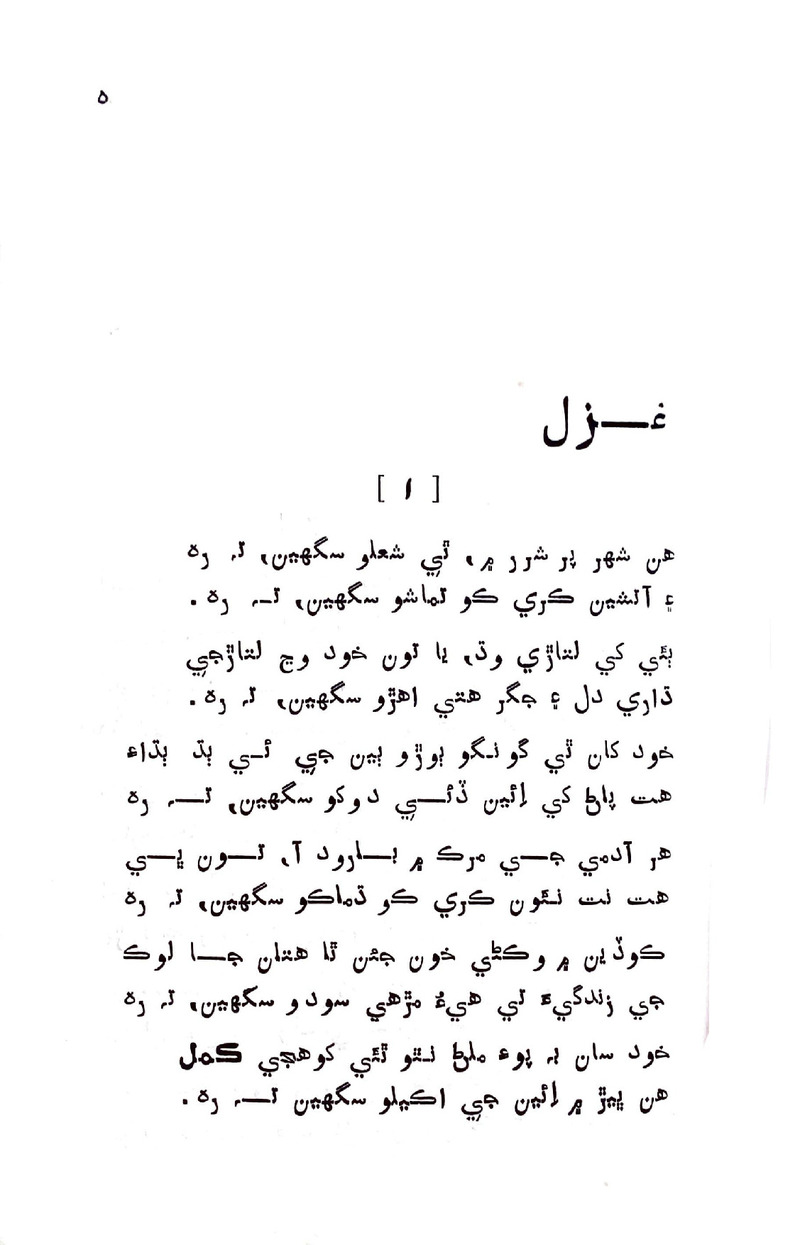 ۵
غـــزل
[ ۱ ]
هن شهر پر شرر ۾، ٿي شعلو سگهين، تہ رھ
۽ آتشين ڪري ڪو تماشو سگهين، تـہ رھ .
ٻئي کي لتاڙي وڌ، يا تون خود وڃ لتاڙجي
ڌاري دل ۽ جگر هتي اهڙو سگهين، تہ رھ .
خود کان ٿي گونگو ٻوڙو ٻين جي ئـي ٻڌ ٻڌاءِ
هت پاڻ کي اِئين ڏئــي دوکو سگهين، تــہ رھ
هر آدمي جــي مرڪ ۾ بــارود آ، تــون ڀــي
هت نت نئون ڪري ڪو ڌماڪو سگهين، تہ رھ
ڪوڏين ۾ وڪڻي خون جئن ٿا هتان جــا لوڪ
جي زندگيءَ تي هيءُ مڙهي سودو سگهين، تہ رھ
خود سان بہ پوءِ ملڻ نٿو ٿئي کوهجي ڪمل
هن ڀيڙ ۾ اِئين جي اڪيلو سگهين تــہ رھ .